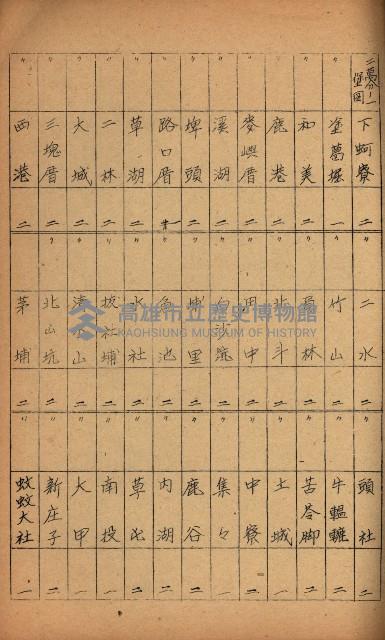 二萬分ノ一堡図 下蚵寮 二
〃 塗葛堀 一
〃 和美 二
〃 鹿港 二
〃 麥嶼厝 二
〃 溪湖 二
〃 埤頭 二
〃 路口厝
〃 草湖 二
〃 二林 二
〃 大城 二
〃 三塊厝 二
〃 西港 二
〃 二水 二
〃 竹山 二
〃 員林 二
〃 北斗 二
〃 田中 二
〃 白沙崙 二
〃 埔里 二
〃 魚池 二
〃 水社 二
〃 坂社埔 二
〃 清水山 二
〃 北山坑 二
〃 茅埔 二
〃 頭社 二
〃 牛轀轆 二
〃 苦苓脚 二
〃 土城 一
〃 中寮 二
〃 集々 一
〃 鹿谷 二
〃 内湖 二
〃 草屯 一
〃 南投 二
〃 大甲 一
〃 新庄子 二
〃 蚊蚊大社 一
高雄市立歷史博物館
KAOHSIUNG MUSEUM OF HISTORY